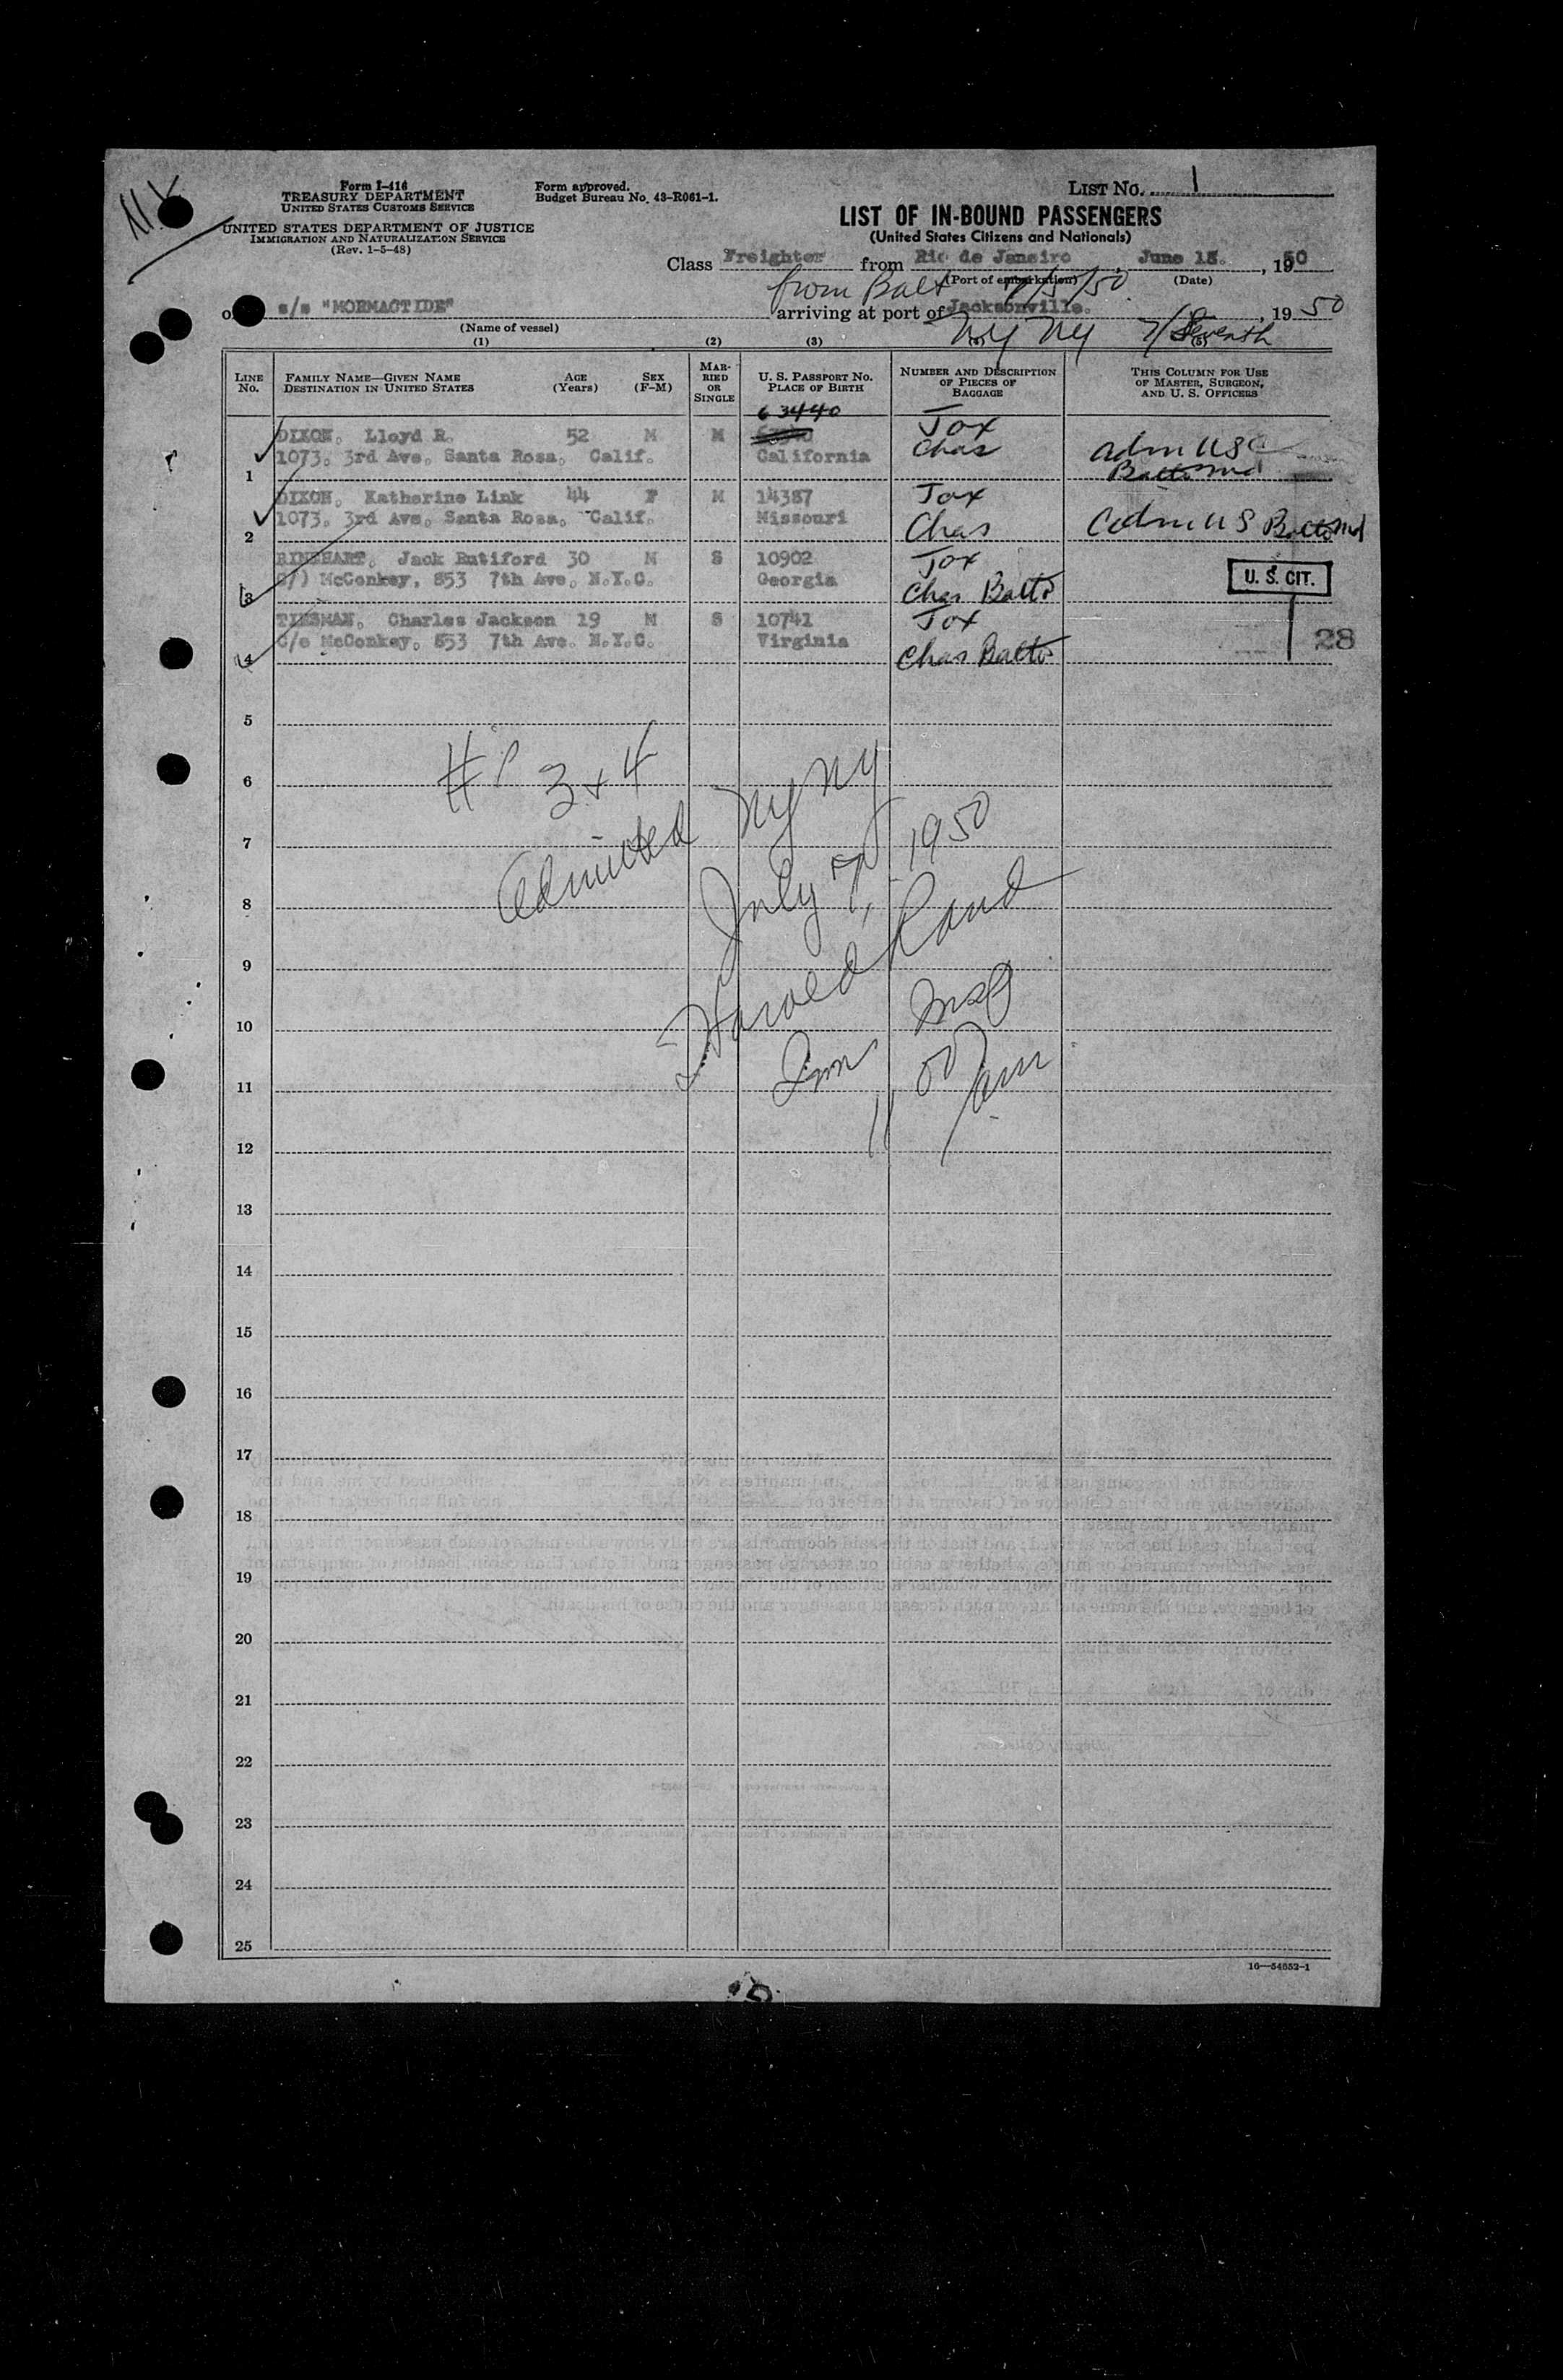 Form I-416
TREASURY DEPARTMENT
UNITED STATES CUSTOMS SERVICE
UNITED STATES DEPARTMENT OF JUSTICE
IMMIGRATION AND NATURALIZATION SERVICE
(Rev. 1-5-48)
Form approved.
Budget Bureau No. 43-R061-1.
LIST No. 1
LIST OF IN-BOUND PASSENGERS
(United States Citizens and Nationals)
Class Freighter from Rio de Janeiro, June 15., 1950
(Port of embarkation) (Date)
from Balt 7/5/50
s/s "MORMACTIDE" arriving at port of Jacksonville., 1950
(Name of vessel)
NY NY 7/Seventh
(1) (2) (3)
LINE No.
FAMILY NAME—GIVEN NAME
DESTINATION IN UNITED STATES
AGE (Years)
SEX (F-M)
MARRIED OR SINGLE
U. S. PASSPORT NO.
PLACE OF BIRTH
NUMBER AND DESCRIPTION OF PIECES OF BAGGAGE
THIS COLUMN FOR USE OF MASTER, SURGEON, AND U. S. OFFICERS
63440
DIXON, Lloyd R. 52 M M Jax
1 1073, 3rd Ave, Santa Rosa, Calif. California Chas adm USC
Balto Md
DIXON, Katherine Link 44 F M 14387 Jax
2 1073, 3rd Ave, Santa Rosa, Calif. Missouri Chas Adm US Balto Md
RINEHART, Jack Rutiford 30 M S 10902 Jax
3 C/) McConkey, 853 7th Ave, N.Y.C. Georgia Chas Balto U. S. CIT.
TINSMAN, Charles Jackson 19 M S 10741 Jax
4 C/o McConkey, 853 7th Ave. N.Y.C. Virginia Chas Balto 28
5
6
7
8
9
10
11
12
13
14
15
16
17
18
19
20
21
22
23
24
25
3 & 4
Admitted NY NY
July 7, 1950
Harold Rand
Imm Insp
11 00 am
16—54652-1